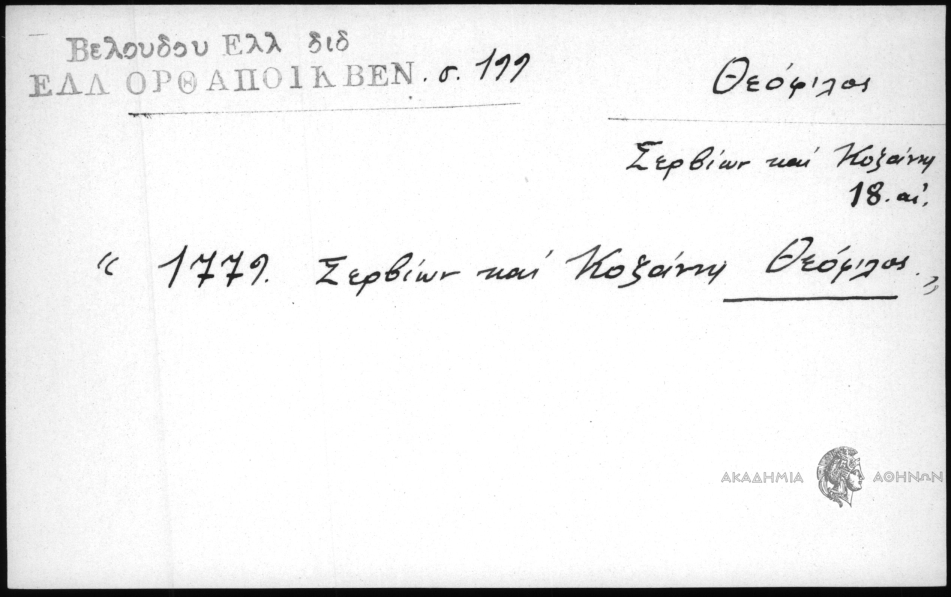 Βελουδου Ελλ διδ
ΕΛΛ ΟΡΘ ΑΠΟΙΚ ΒΕΝ. σ. 199
Θεόφιλος
Σερβίων καί Κοζάνη
18. αἰ.
“ 1779. Σερβίων καί Κοζάνη Θεόφιλος. „
ΑΚΑΔΗΜΙΑ ΑΘΗΝΩΝ